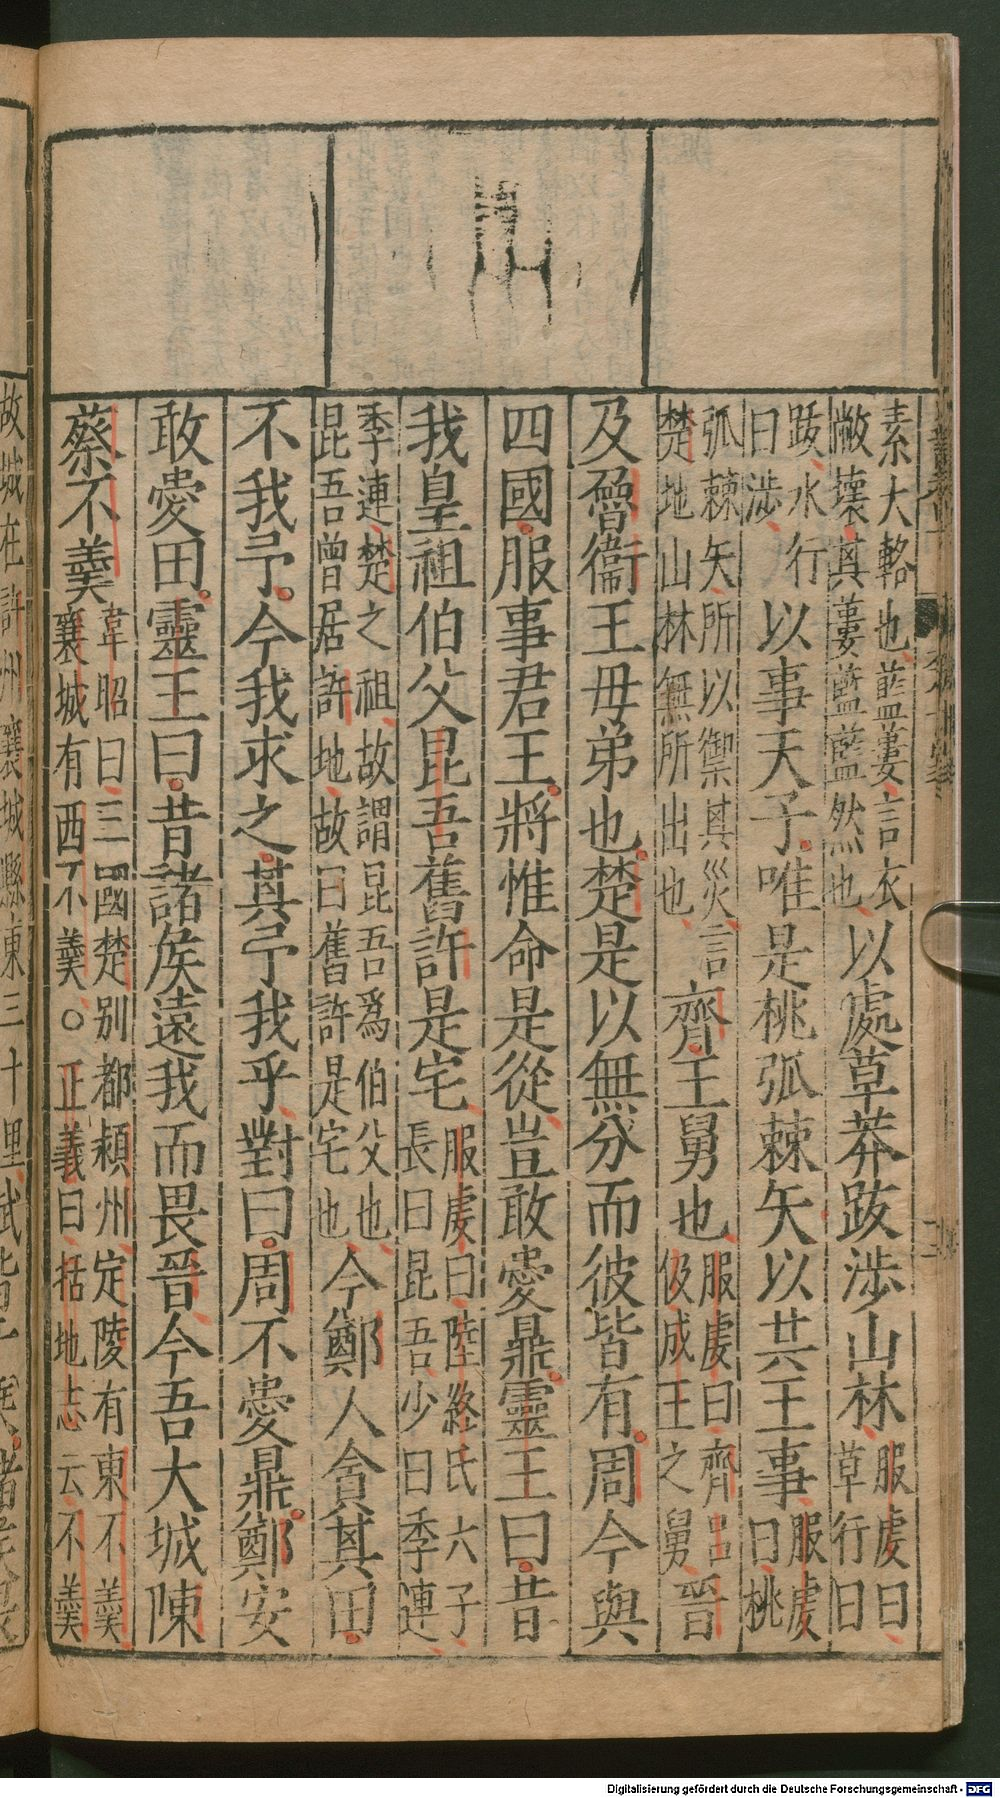 素大輅也藍蔞言衣
敝壞其蔞藍藍然也
以處草莽跋涉山林
服虔曰
草行曰
跋水行
曰涉
以事天子唯是桃弧棘矢以共王事
服虔
曰桃
弧棘矢所以禦其災言
楚地山林無所出也
齊王舅也
服虔曰齊呂
伋成王之舅
晉
及魯衛王母弟也楚是以無分而彼皆有周今與
四國服事君王將惟命是從豈敢愛鼎靈王曰昔
我皇祖伯父昆吾舊許是宅
服虔曰陸終氏六子
長曰昆吾少曰季連
季連楚之祖故謂昆吾爲伯父也
昆吾曾居許地故曰舊許是宅也
今鄭人貪其田
不我予今我求之其予我乎對曰周不愛鼎鄭安
敢愛田靈王曰昔諸侯遠我而畏晉今吾大城陳
蔡不羹
韋昭曰三國楚別都潁州定陵有東不羹
襄城有西不羹○正義曰括地志云不羹
故城在許州襄城縣東三十里
Digitalisierung gefördert durch die Deutsche Forschungsgemeinschaft - DFG